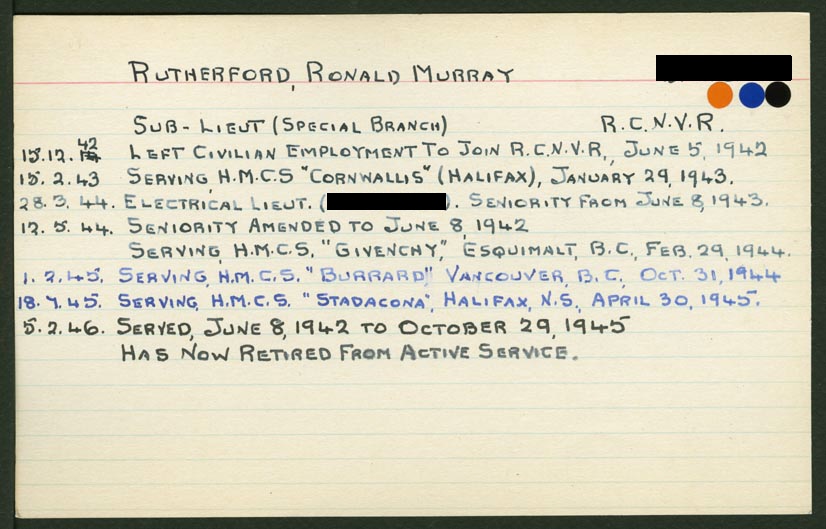 RUTHERFORD, RONALD MURRAY
SUB-LIEUT (SPECIAL BRANCH) R.C.N.V.R.
15.12.42 LEFT CIVILIAN EMPLOYMENT TO JOIN R.C.N.V.R., JUNE 5, 1942
15.2.43 SERVING H.M.C.S "CORNWALLIS" (HALIFAX), JANUARY 29, 1943.
28.3.44. ELECTRICAL LIEUT. ( ). SENIORITY FROM JUNE 8, 1943.
12.5.44. SENIORITY AMENDED TO JUNE 8, 1942
SERVING, H.M.C.S. "GIVENCHY," ESQUIMALT, B.C., FEB. 29, 1944.
1.2.45. SERVING, H.M.C.S. "BURRARD," VANCOUVER, B.C., OCT. 31, 1944
18.7.45. SERVING, H.M.C.S. "STADACONA", HALIFAX, N.S., APRIL 30, 1945.
5.2.46. SERVED, JUNE 8, 1942 TO OCTOBER 29, 1945
HAS NOW RETIRED FROM ACTIVE SERVICE.